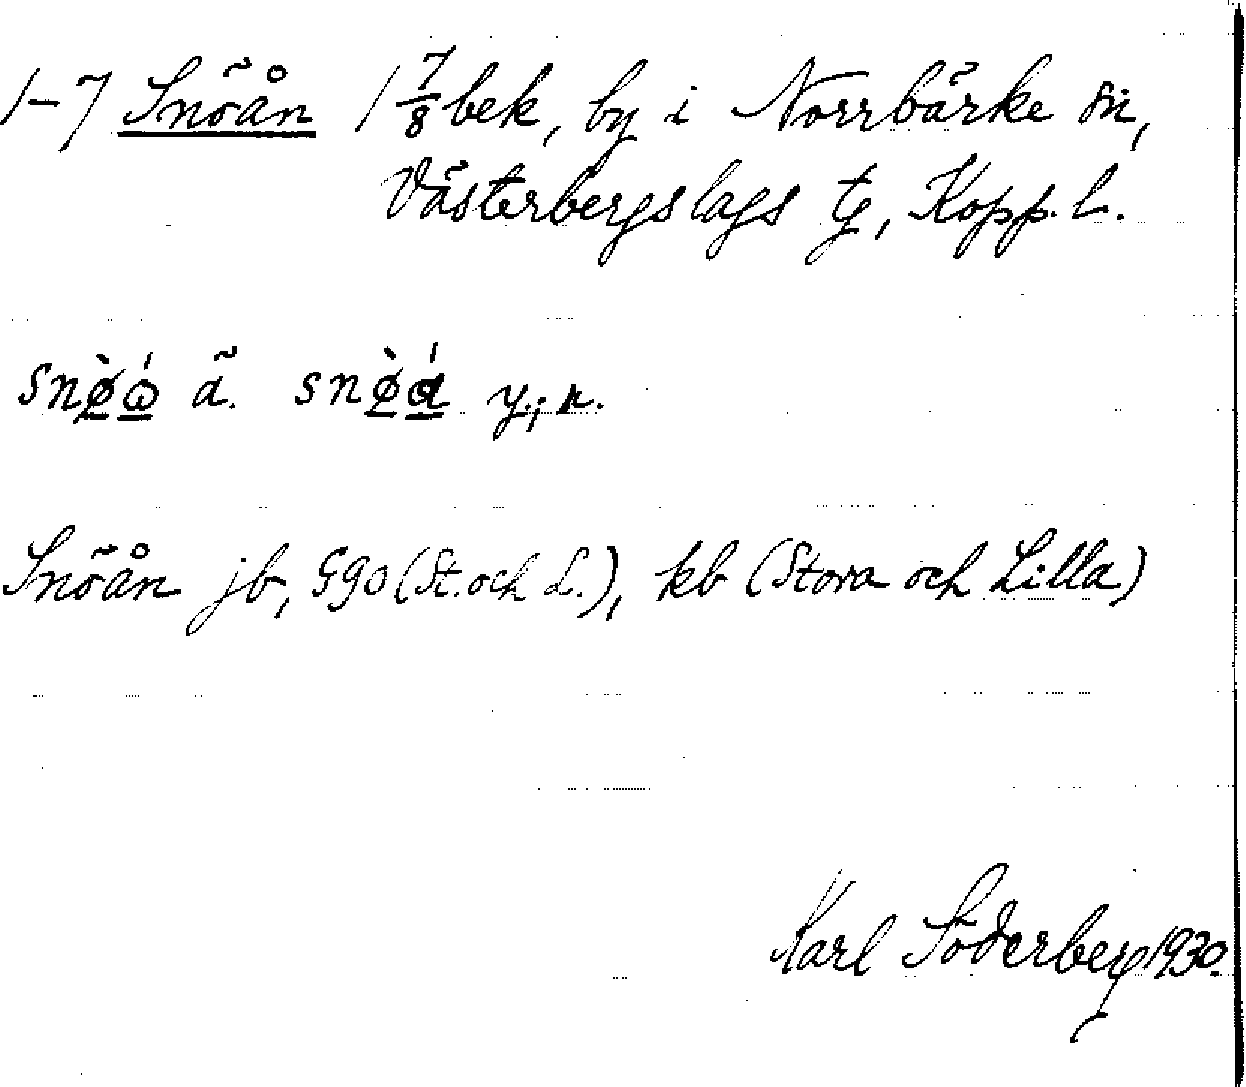 1-7 Snöån 1 7/8 bek, by i Norrbärke sn,
Västerbergslags tg, Kopp. l.
snø̀ώ ä. snø̀ά y.; r.
Snöån jb, Ggo (St. och L.), kb (Stora och Lilla)
Karl Söderberg 1930.